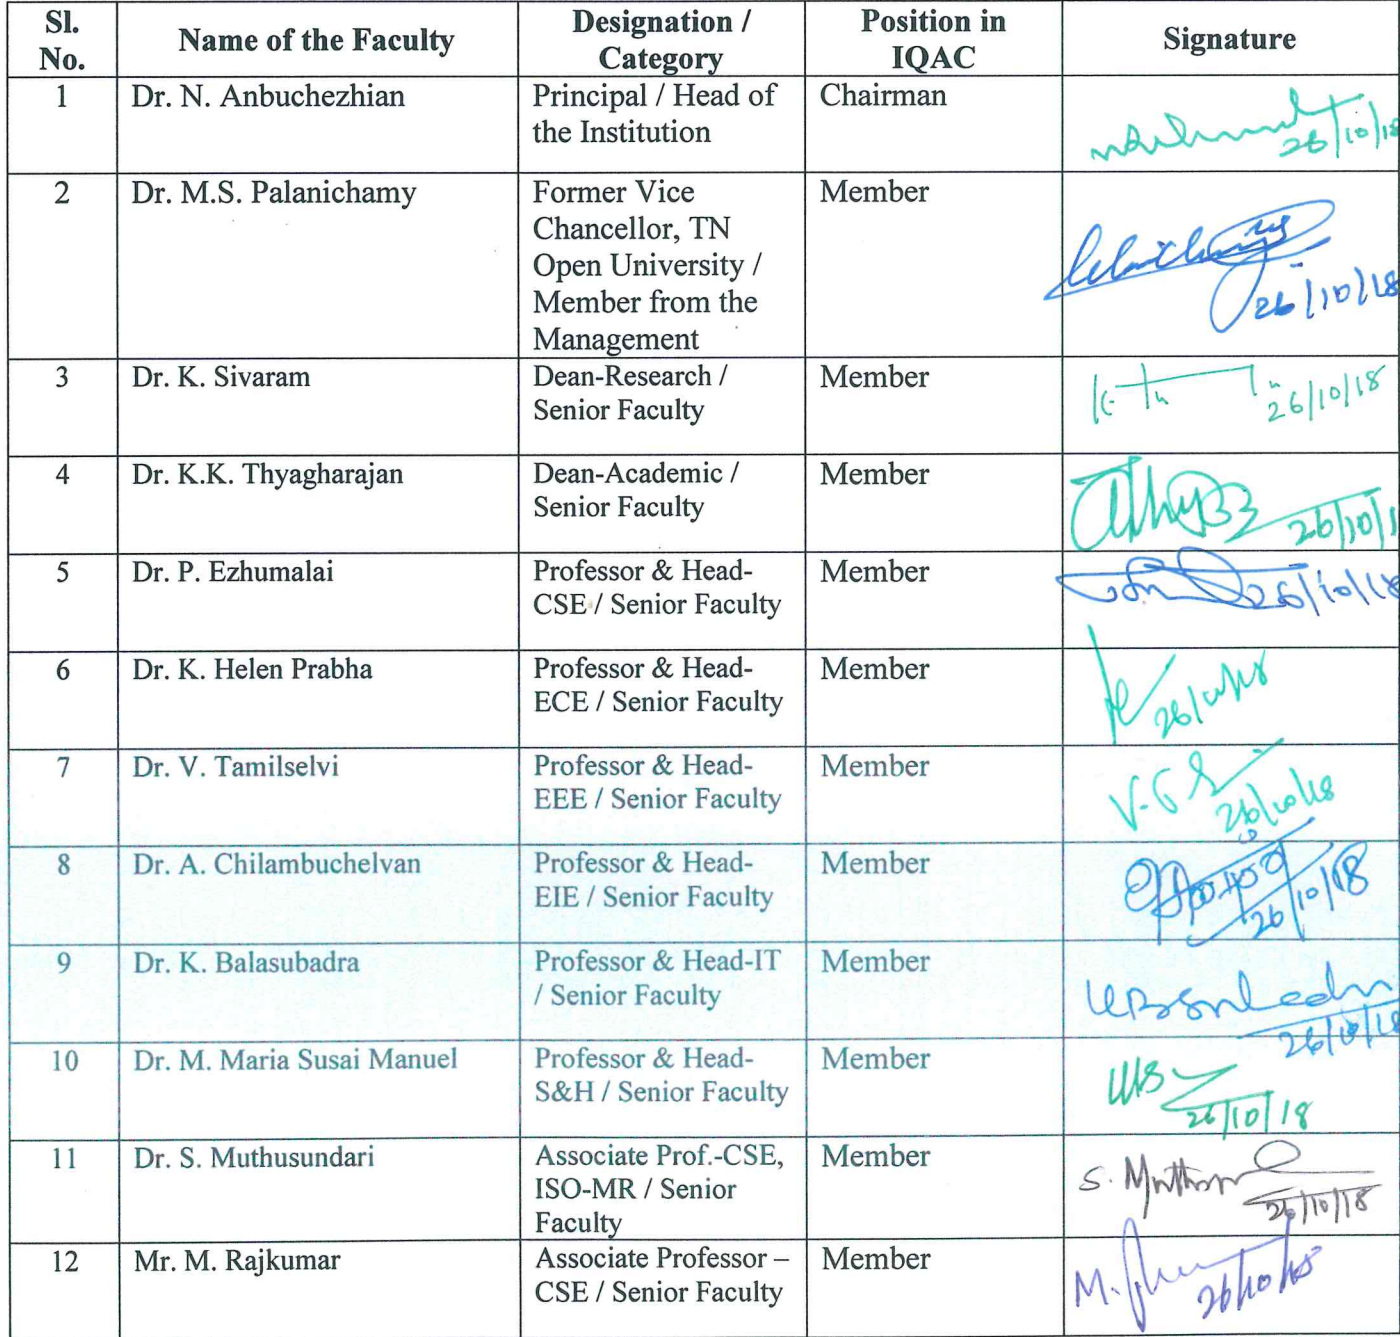 Sl. No. Name of the Faculty Designation / Category Position in IQAC Signature
1 Dr. N. Anbuchezhian Principal / Head of Chairman
the Institution
26/10/18
2 Dr. M.S. Palanichamy Former Vice Member
Chancellor, TN
Open University /
Member from the
Management
26/10/18
3 Dr. K. Sivaram Dean-Research / Member
Senior Faculty
26/10/18
4 Dr. K.K. Thyagharajan Dean-Academic / Member
Senior Faculty
26/10/1
5 Dr. P. Ezhumalai Professor & Head- Member
CSE / Senior Faculty
26/10/18
6 Dr. K. Helen Prabha Professor & Head- Member
ECE / Senior Faculty
26/10/18
7 Dr. V. Tamilselvi Professor & Head- Member
EEE / Senior Faculty
26/10/18
8 Dr. A. Chilambuchelvan Professor & Head- Member
EIE / Senior Faculty
26/10/18
9 Dr. K. Balasubadra Professor & Head-IT Member
/ Senior Faculty
26/10/18
10 Dr. M. Maria Susai Manuel Professor & Head- Member
S&H / Senior Faculty
26/10/18
11 Dr. S. Muthusundari Associate Prof.-CSE, Member
ISO-MR / Senior
Faculty
26/10/18
12 Mr. M. Rajkumar Associate Professor – Member
CSE / Senior Faculty
26/10/18